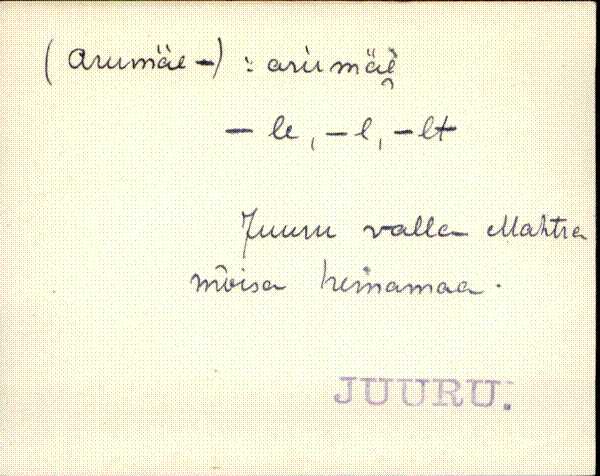 (Arumäe-) : arùmäe̯
- le, - l, - lt
Juuru valla Mahtra
mõisa heinamaa.
JUURU.